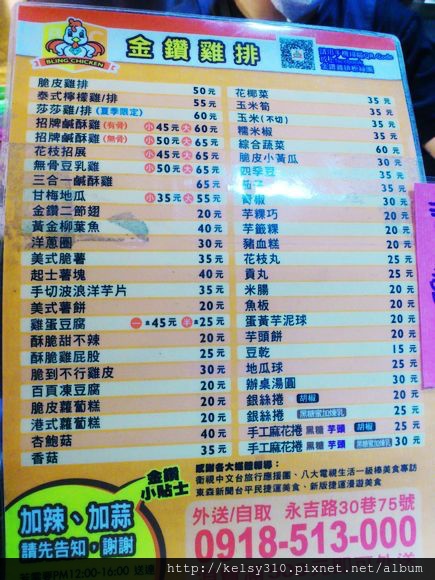 金鑽雞排
BLING CHICKEN
脆皮雞排 50元
泰式檸檬雞/排 55元
莎莎雞/排(夏季限定) 60元
招牌鹹酥雞(有骨) 小45元大60元
招牌鹹酥雞(無骨) 小50元大65元
花枝招展 小45元大65元
無骨豆乳雞 小50元大65元
三合一鹹酥雞 65元
甘梅地瓜 小35元大55元
金鑽二節翅 20元
黃金柳葉魚 40元
洋蔥圈 30元
美式脆薯 35元
起士薯塊 40元
手切波浪洋芋片 35元
美式薯餅 20元
雞蛋豆腐 一盒45元 半盒25元
酥脆甜不辣 20元
酥脆雞屁股 25元
脆到不行雞皮 30元
百頁凍豆腐 20元
脆皮蘿蔔糕 20元
港式蘿蔔糕 20元
杏鮑菇 40元
香菇 35元
花椰菜 35元
玉米筍 35元
玉米(不切) 35元
糯米椒 35元
綜合蔬菜 60元
脆皮小黃瓜 30元
四季豆 35元
茄子 35元
青椒 35元
芋粿巧 20元
芋籤粿 20元
豬血糕 20元
花枝丸 25元
貢丸 25元
米腸 20元
魚板 20元
蛋黃芋泥球 20元
芋頭餅 20元
豆乾 15元
地瓜球 25元
辦桌湯圓 30元
銀絲捲 胡椒 20元
銀絲捲 黑糖蜜加煉乳 25元
手工麻花捲 黑糖 芋頭 胡椒 25元
手工麻花捲 黑糖 芋頭 黑糖蜜加煉乳 30元
金鑽
小貼士
加辣、加蒜
請先告知，謝謝
感謝各大媒體報導：
衛視中文台旅行應援團、八大電視生活一級棒美食專訪
東森新聞台平民捷運美食、新版捷運漫遊美食
外送/自取 永吉路30巷75號
0918-513-000
PM12:00-16:00
http://kelsy310.pixnet.net/album